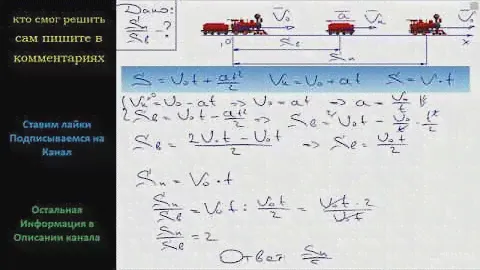 кто смог решить
сам пишите в
комментариях
Ставим лайки
Подписываемся на
Канал
Остальная
Информация в
Описании канала
Дано:
Sп/Sв - ?
V₀ a Vк V₀
0 x
Sв
Sп
S = V₀t + at²/2 Vк = V₀ + at S = V·t
Vк = V₀ - at ⇒ V₀ = at ⇒ a = V₀/t
Sв = V₀t - at²/2 ⇒ Sв = V₀t - V₀/t · t²/2
Sв = 2V₀t - V₀t/2 ⇒ Sв = V₀t/2
Sп = V₀·t
Sп/Sв = V₀t : V₀t/2 = V₀t·2/V₀t
Sп/Sв = 2
Ответ Sп